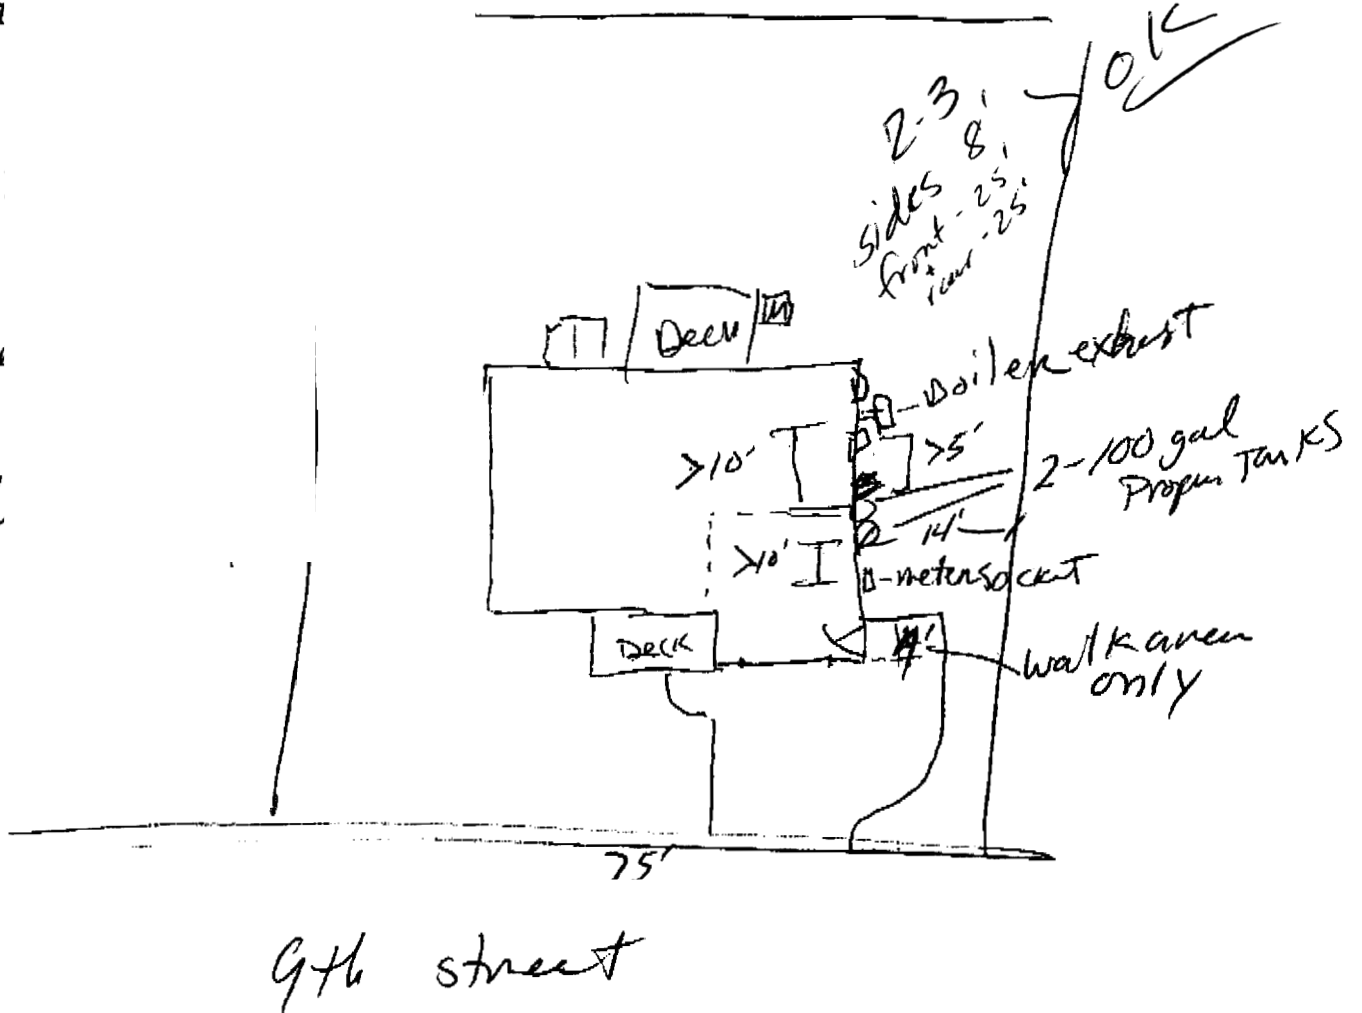 OK
2-3
8'
sides
front - 25'
rear - 25'
Deck
Boiler exhust
>10'
>5'
2-100 gal
Propan Tanks
14'
>10'
metersocket
Deck
4'
walk area
only
75'
9th street